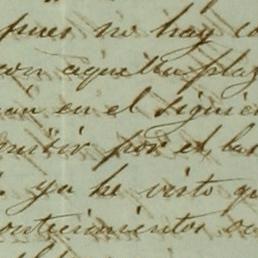 pues no hay co
con aquella plaz
en el siguien
por el
ya he visto qu
contecimientos